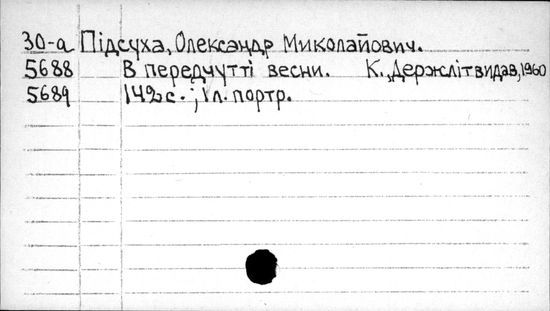 30-а Підсуха, Олександр Миколайович.
5688 В передчутті весни. К., Держлітвидав, 1960
5689 142 с.; 1 л. портр.